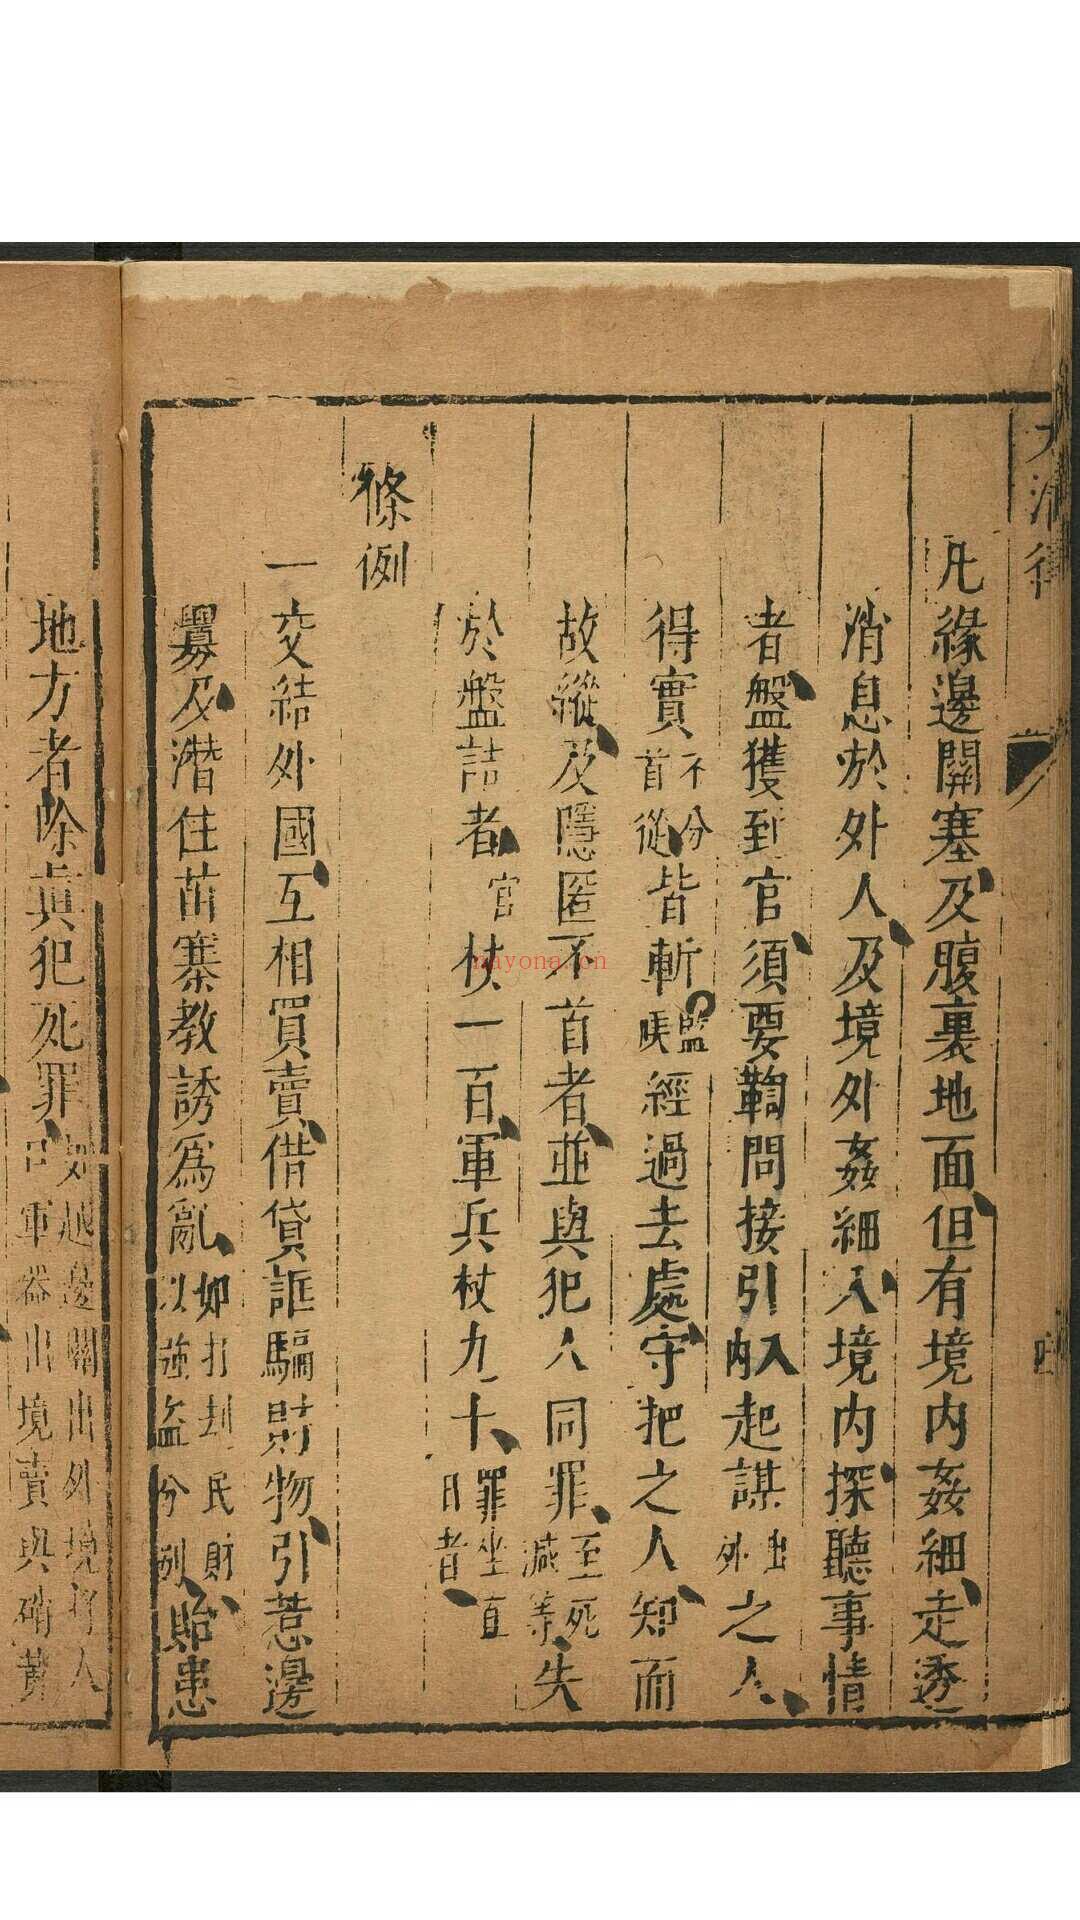 大清律
凡緣邊關塞及腹裏地面但有境內姦細走透
消息於外人及境外姦細入境內探聽事情
者盤獲到官須要鞫問接引入內起謀出外之人
得實不分首從皆斬監候經過去處守把之人知而
故縱及隱匿不首者並與犯人同罪至死減等失
於盤詰者官杖一百軍兵杖九十罪坐直日者
條例
一交結外國互相買賣借貸誆騙財物引惹邊
釁及潛住苗寨教誘為亂如打刦民財以強盗分別貽患
地方者除眞犯死罪如越邊關出外境將人口軍器出境賣與硝黃
nayona.cn